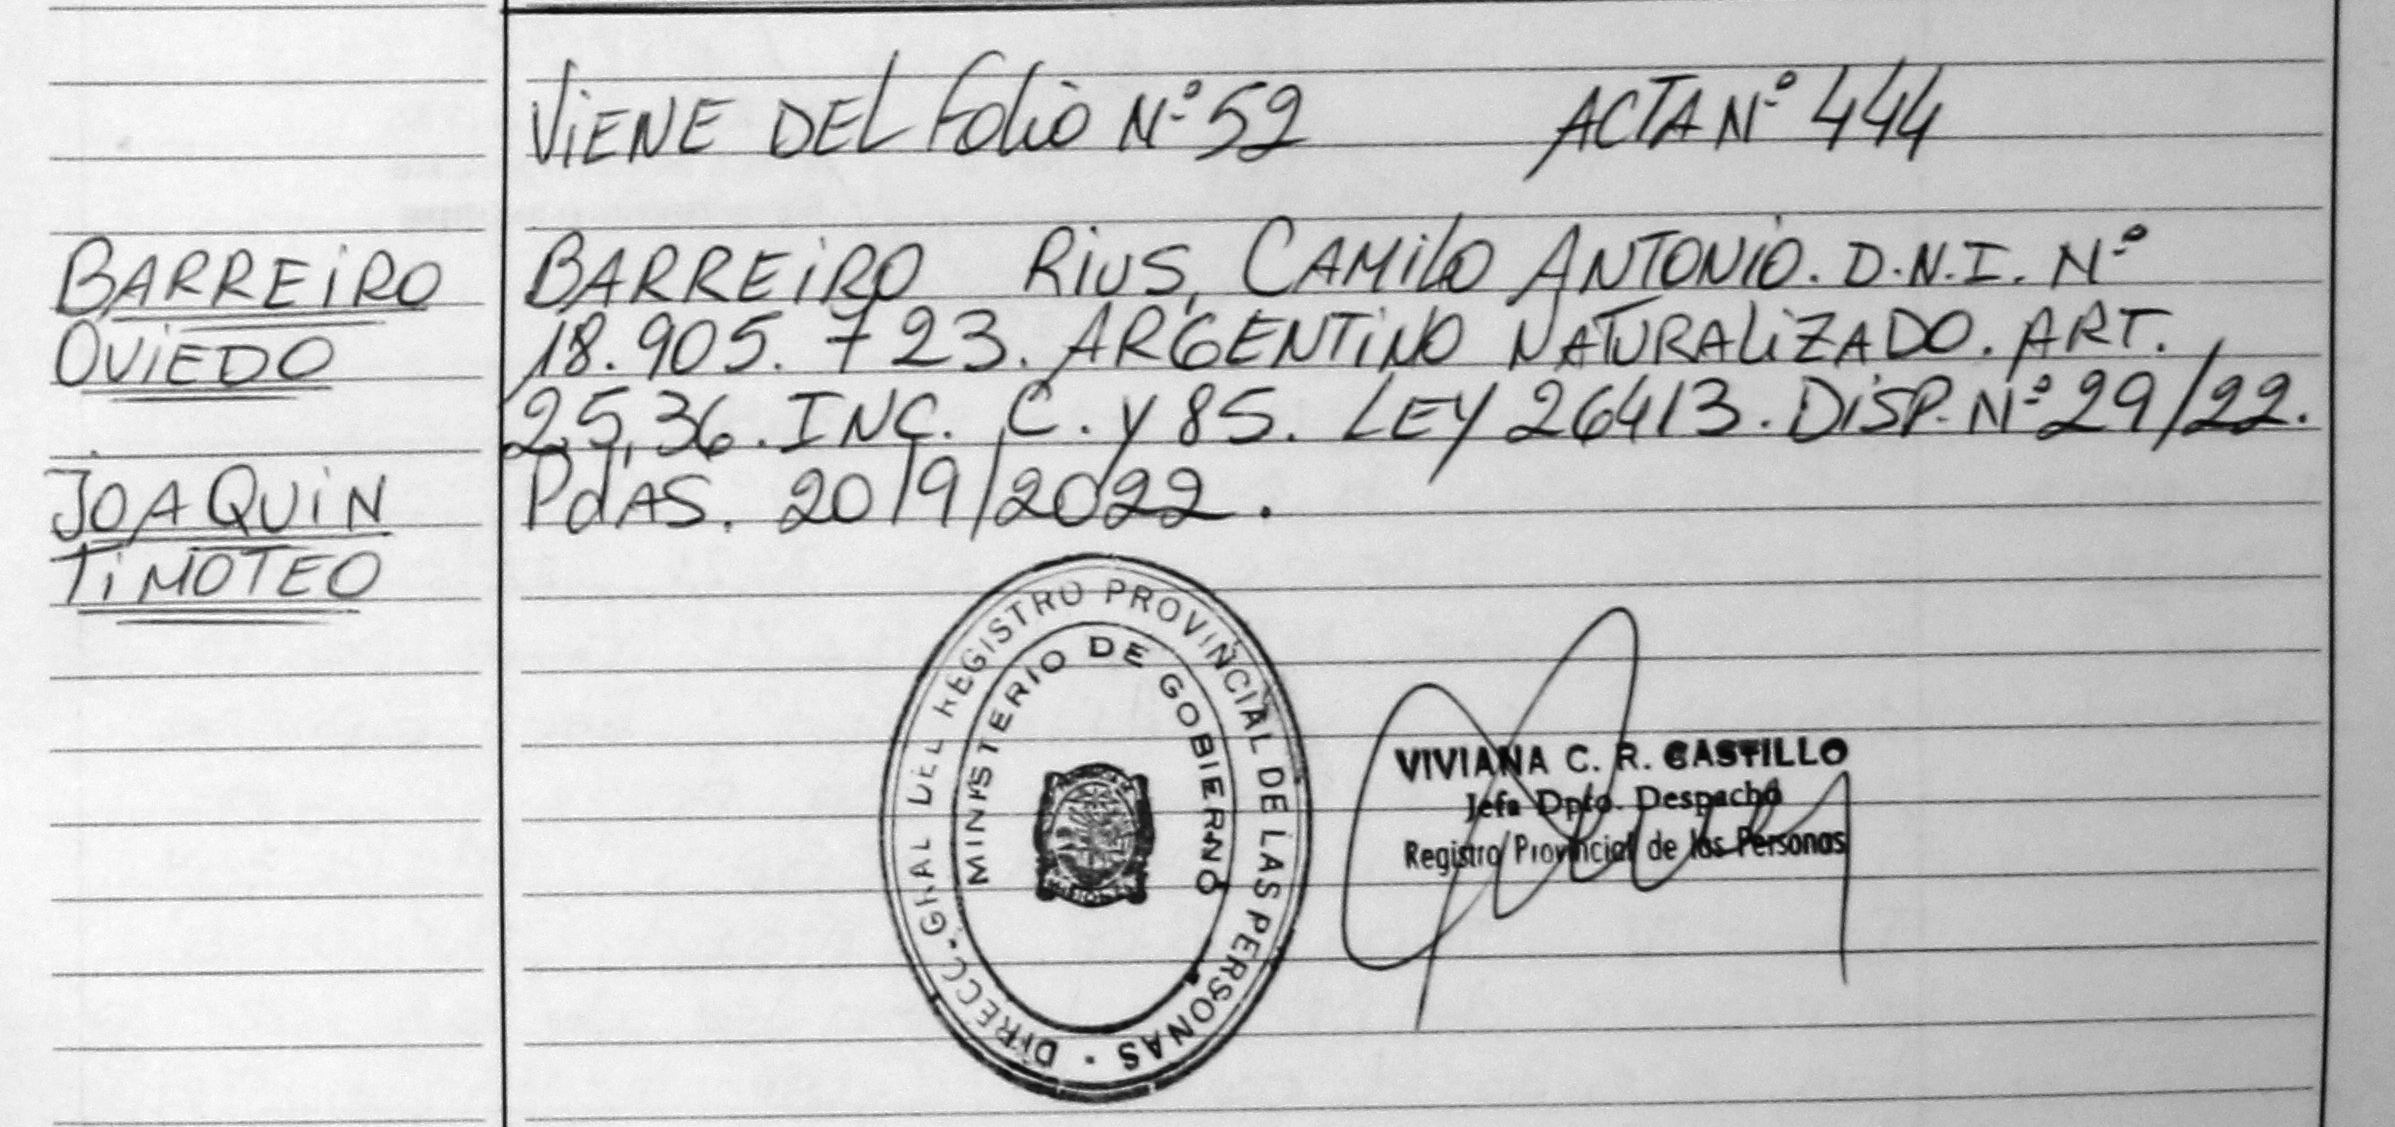 VIENE DEL Folio Nº 52 ACTA Nº 444
BARREIRO
OVIEDO
JOAQUIN
TIMOTEO
BARREIRO RIUS, CAMILO ANTONIO. D.N.I. Nº
18.905.723. ARGENTINO NATURALIZADO. ART.
25,36. INC. C. Y 85. LEY 26413. DISP. Nº 29/22.
PdAS. 20/9/2022.
DIRECC. GRAL DEL REGISTRO PROVINCIAL DE LAS PERSONAS
MINISTERIO DE GOBIERNO
VIVIANA C. R. CASTILLO
Jefa Dpto. Despacho
Registro Provincial de las Personas